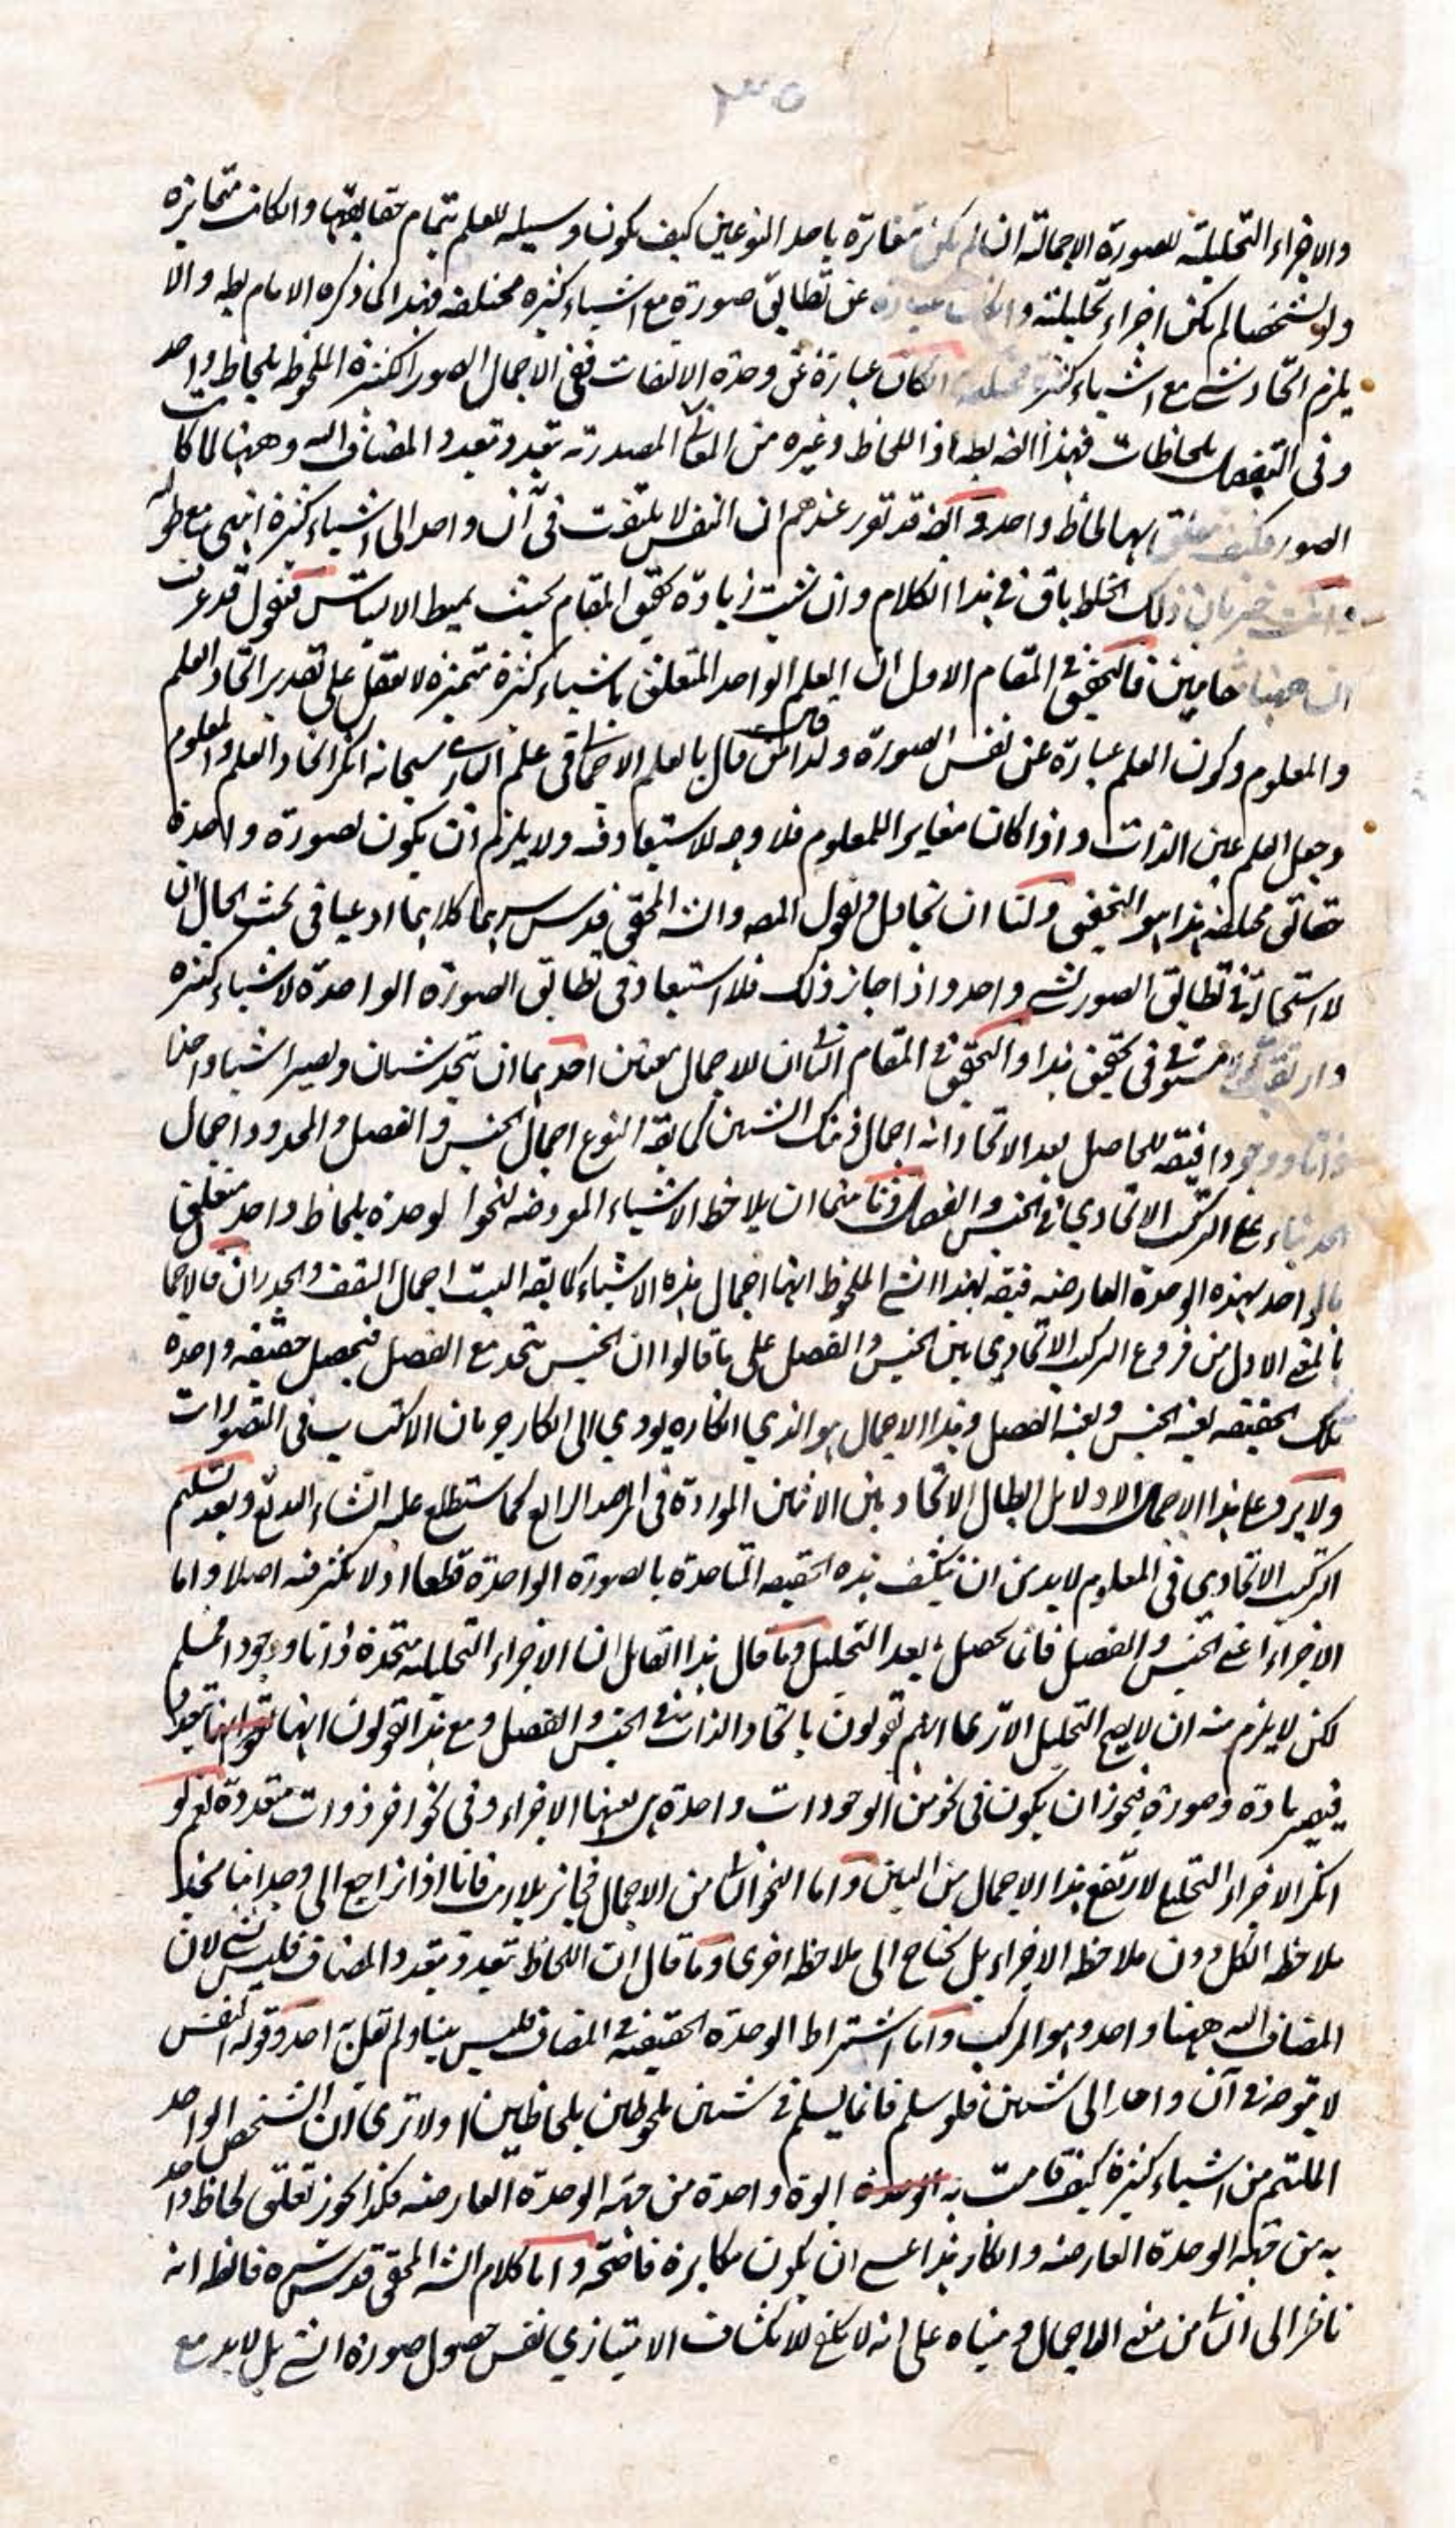 ٣٥
والاجزاء التحليلية للصورة الاجمالية ان لم يكن متغائرة باحد النوعين كيف يكون وسيلة للعلم بتمام حقايقها وان كانت متمايزة
ولو تشخصا لم يكن اجزاء تحليلية وان عبارة عن تطابق صورة مع اشياء كثيرة مختلفة فهذا كما ذكره الامام بط والا
يلزم اتحاد شئ مع اشياء كثيرة مختلفة وان كان عبارة عن وحدة الالتفات ففي الاجمال الصور الكثيرة الملحوظة بلحاظ واحد
وفي التفصيل بلحاظات فهذا ايضا بط اذ اللحاظ وغيره من المعاني المصدرية يتعدد بتعدد المضاف اليه وههنا لما كانت
الصور فكيف يتعلق بها لحاظ واحد وايضا قد تقرر عندهم ان النفس لا يلتفت في آن واحد الى اشياء كثيرة انتهى مع طوله
وانت خبير بان ذلك الخلط باق في هذا الكلام وان شئت زيادة تحقيق المقام بحيث يميط الالتباس فنقول قد عرفت
ان ههنا مقامين فالتحقيق في المقام الاول ان العلم الواحد المتعلق باشياء كثيرة متميزة لا يعقل على تقدير اتحاد العلم
والمعلوم وكون العلم عبارة عن نفس الصورة ولذا من قال بالعلم الاجمالي في علم الباري سبحانه انكر اتحاد العلم والمعلوم
وجعل العلم عين الذات واذا كان مغايرا للمعلوم فلا وجه للاستبعاد فيه ولا يلزم ان يكون لصورة واحدة
حقائق مختلفة هذا هو التحقيق ولنا ان نجادل ونقول المصـ والشـ المحقق قدس سرهما كلاهما ادعيا في بحث الحال ان
لا استحالة في تطابق الصور لشئ واحد واذا جاز ذلك فلا استبعاد في تطابق الصورة الواحدة لاشياء كثيرة
في تحقيق هذا والتحقيق في المقام الثاني ان للاجمال معنيين احدهما ان يتحد شيئان ويصير اشيا واحدا
ذاتا ووجودا فيقـ للحاصل بعد الاتحاد انه اجمال ذينك الشيئين كما يقـ النوع اجمال الجنس والفصل والمحدود اجمال
الحد بناء على التركيب الاتحادي في الجنس والفصل وثانيهما ان يلاحظ الاشياء المعروضة لنحو الوحدة بلحاظ واحد متعلق
بالواحد بهذه الوحدة العارضة فيقـ لهذا الشئ الملحوظ انها اجمال هذه الاشياء كما يقـ البيت اجمال السقف والجدران فالاجمال
بالمعنى الاول من فروع التركيب الاتحادي بين الجنس والفصل على ما قالوا ان الجنس يتحد مع الفصل فيحصل حقيقة واحدة
تلك الحقيقة بعينه الجنس وبعينه الفصل وهذا الاجمال هو الذي انكاره يؤدي الى انكار جريان الاكتساب في التصورات
ولا يرد على هذا الاجمال الا دلايل ابطال الاتحاد بين الاثنين الموردة في المرصد الرابع كما ستطلع عليه انشاء الله تع وبعد تسليم
التركيب الاتحادي في المعلوم لا بد من ان ينكشف هذه الحقيقة المتاحدة بالصورة الواحدة قطعا اذ لا تكثر فيه اصلا واما
الاجزاء اعني الجنس والفصل فانما يحصل بعد التحليل وما قال هذا القائل ان الاجزاء التحليلية متحدة ذاتا ووجودا فمسلم
لكن لا يلزم منه ان لا يصح التحليل الا ترى انهم يقولون باتحاد الذات في الجنس والفصل ومع هذا يقولون انها
فيصير مادة وصورة فيجوز ان يكون في نحو من الوجودات واحدة هي بعينها الاجزاء وفي نحو آخر ذوات متعددة نعم لو
انكر الاجزاء التحليلي لارتفع هذا الاجمال من البين واما النحو الثاني من الاجمال فجائز بلا ريب فانا اذا نراجع الى وجداننا نجد
ملاحظة الكل دون ملاحظة الاجزاء بل يحتاج الى ملاحظة اخرى وما قال ان اللحاظ يتعدد بتعدد المضاف فليس بشئ لان
المضاف اليه ههنا واحد وهو المركب واما اشتراط الوحدة الحقيقية في المضاف فليس بينا ولم يقل به احد وقوله النفس
لا يتوجه في آن واحد الى شيئين فلو سلم فانما يسلم في شيئين ملحوظين بلحاظين اولا ترى ان الشخص الواحد
الملتئم من اشياء كثيرة كيف قامت به ابوة واحدة من جهة الوحدة العارضة فكذا يجوز تعلق لحاظ واحد
به من جهة الوحدة العارضة وانكار هذا عسى ان يكون مكابرة فاضحة واما كلام الشـ المحقق قدس سره فالظ انه
ناظر الى الثاني من معنى الاجمال ومبناه على انه لا يكفي للانكشاف الامتيازي نفس حصول صورة الشئ بل لا بد مع